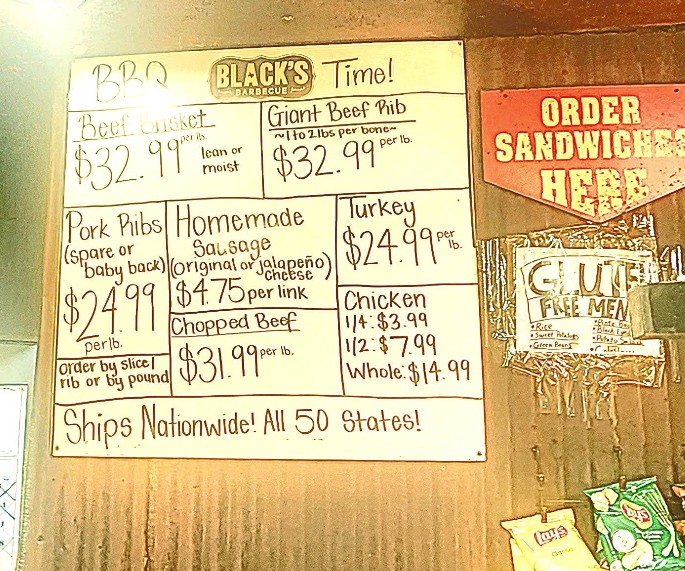 BBQ BLACK'S BARBECUE Time!
Beef Brisket
$32.99 per lb.
lean or
moist
Giant Beef Rib
~1 to 2 lbs per bone~
$32.99 per lb.
Pork Ribs
(spare or
baby back)
$24.99
per lb.
order by slice/
rib or by pound
Homemade
Sausage
(original or jalapeño)
cheese
$4.75 per link
Chopped Beef
$31.99 per lb.
Turkey
$24.99 per lb.
Chicken
1/4: $3.99
1/2: $7.99
Whole: $14.99
Ships Nationwide! All 50 States!
ORDER
SANDWICHES
HERE
GLUT
FREE MEN
•Rice
•Sweet Potatoes
•Green Beans
Lay's
Lay's